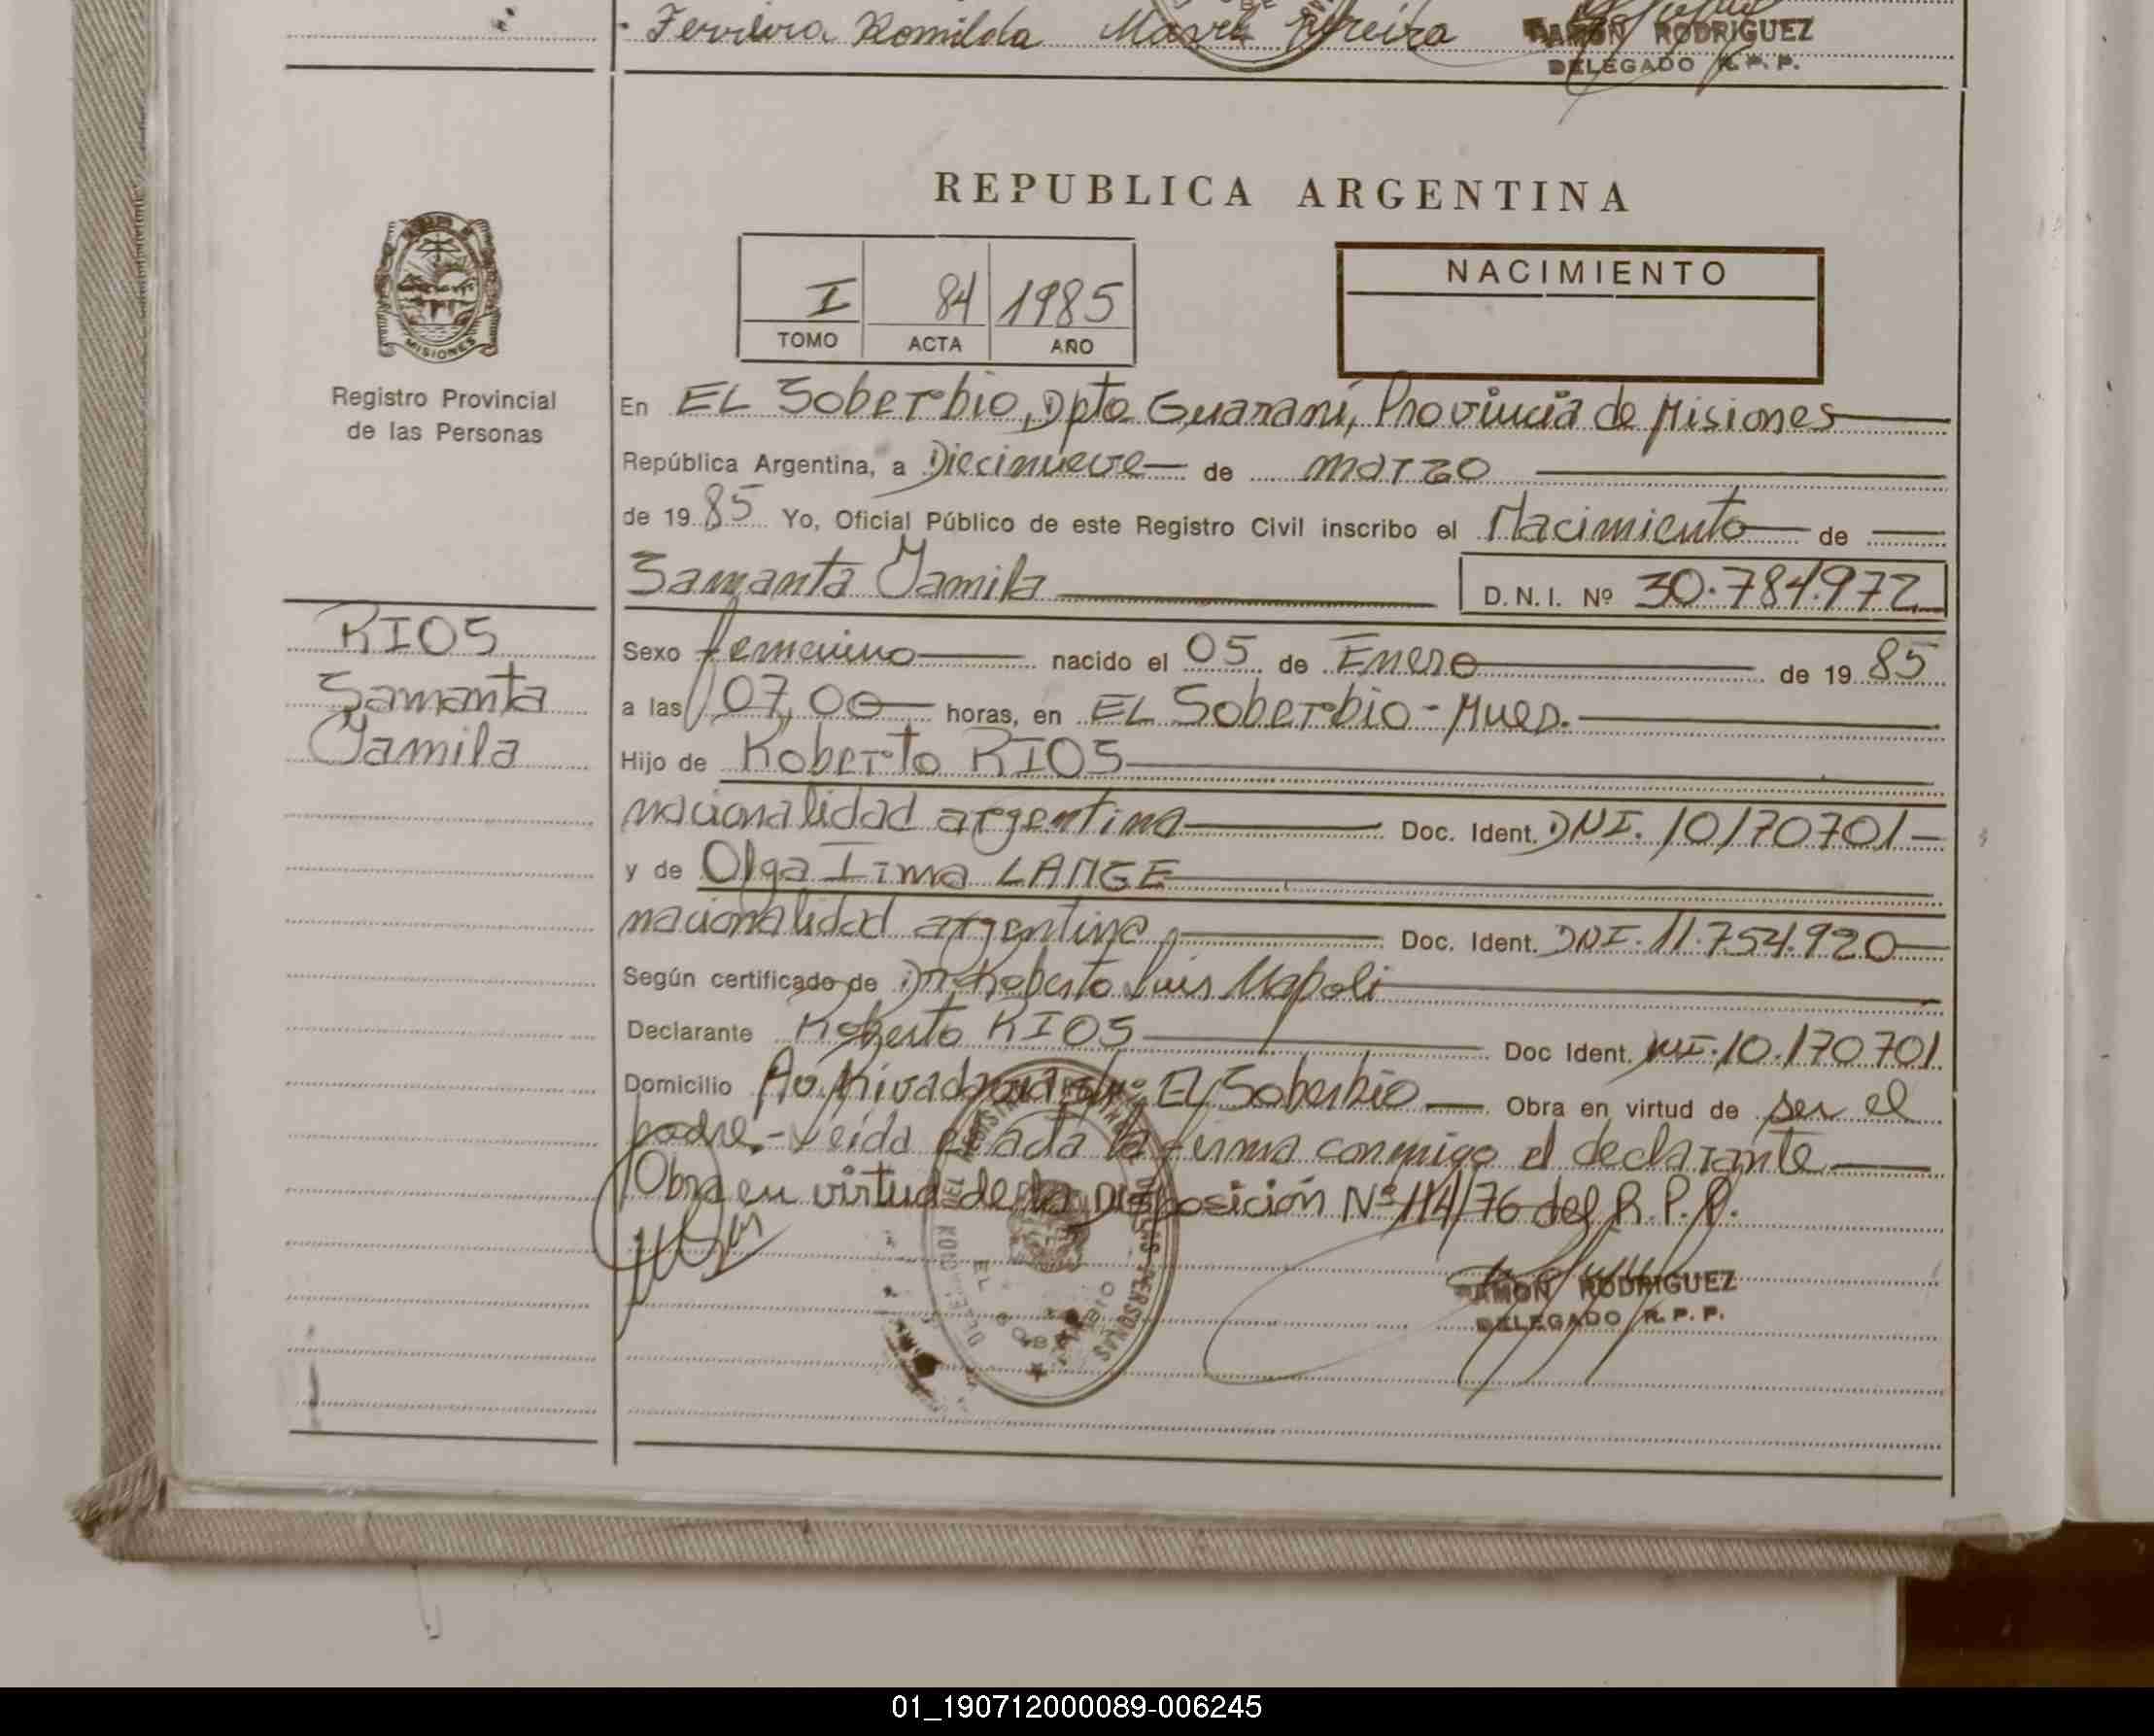 Ferreira Romilda Mavel Ferreira
RAMON RODRIGUEZ
DELEGADO R. P. P.
REPUBLICA ARGENTINA
I 84 1985
TOMO ACTA AÑO
NACIMIENTO
MISIONES
Registro Provincial
de las Personas
En EL Soberbio, Dpto Guarani, Provincia de Misiones
República Argentina, a Diecinueve de marzo
de 1985 Yo, Oficial Público de este Registro Civil inscribo el Nacimiento de
Samanta Yamila D. N. I. Nº 30.784.972
RIOS
Samanta
Yamila
Sexo femenino nacido el 05 de Enero de 1985
a las 07,00 horas, en EL Soberbio - Mnes.
Hijo de Roberto RIOS
nacionalidad argentina Doc. Ident. DNI. 10170701
y de Olga Irma LANGE
nacionalidad argentina Doc. Ident. DNI. 11.754.920
Según certificado de Dr. Roberto Luis Napoli
Declarante Roberto RIOS Doc Ident. DNI. 10.170701
Domicilio Av. Rivadavia s/nº EL Soberbio Obra en virtud de ser el
padre.- Leida el acta la firma conmigo el declarante
Obra en virtud de la Disposición Nº 114/76 del R. P. P.
RAMON RODRIGUEZ
DELEGADO R. P. P.
EL SOBERBIO
01_190712000089-006245